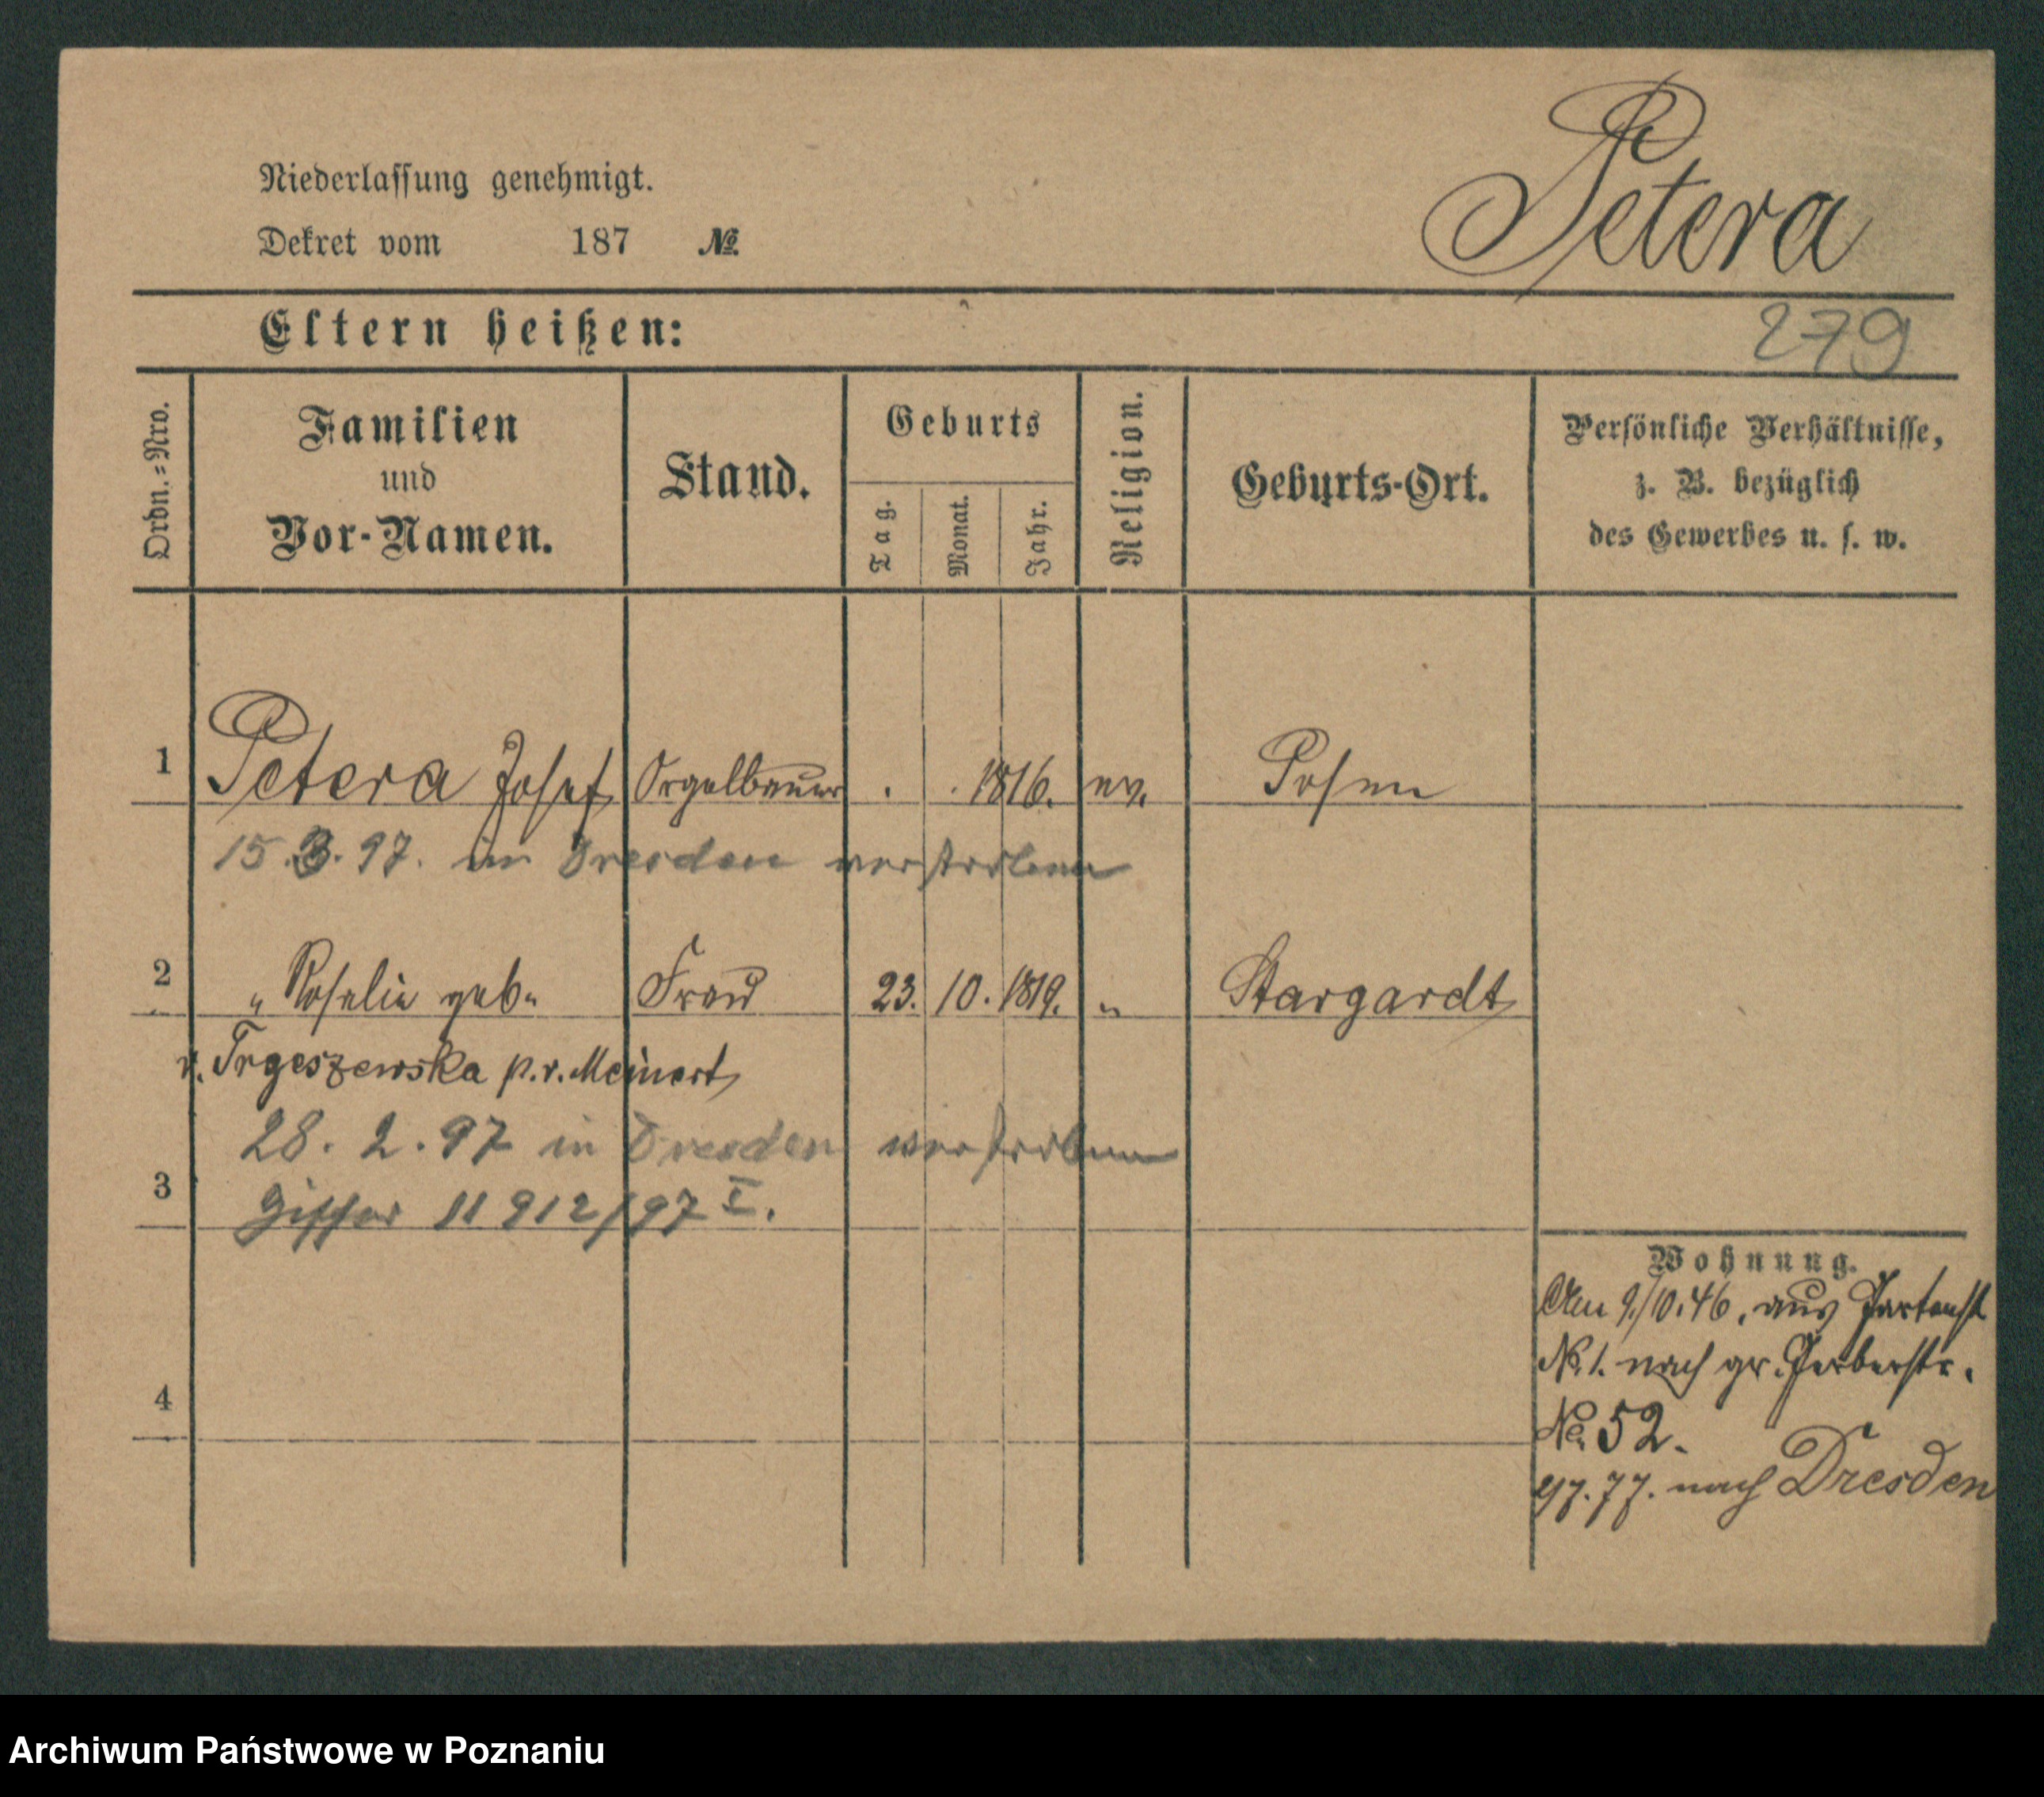 Petera
Niederlassung genehmigt.
Dekret vom 187 №
Eltern heißen:
279
Ordn.=Nro.
Familien
und
Vor-Namen.
Stand.
Geburts
Tag.
Monat.
Jahr.
Religion.
Geburts-Ort.
Persönliche Verhältnisse,
z. B. bezüglich
des Gewerbes u. s. w.
1 Petera Josef Orgelbauer . . 1816. ev. Posen
15.3.97. in Dresden verstorben
2 " Roselie geb. Frau 23. 10. 1819. " Stargardt
v. Trgeszewska p.v. Meinert
28. 2. 97 in Dresden verstorben
3
11912/97 I.
Wohnung.
Am 9./10.46. aus
№ 1. nach gr. Gerberstr.
4
№ 52.
77. nach Dresden
Archiwum Państwowe w Poznaniu